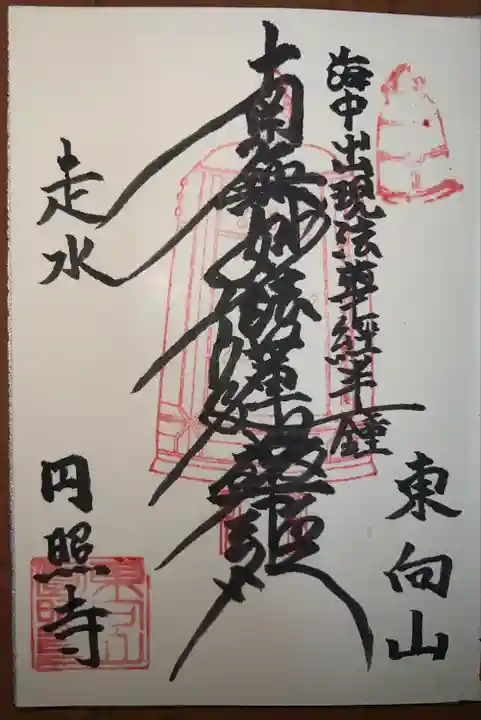 海中出現法華經半鐘
東向山
南無妙法蓮華經
走水
円照寺